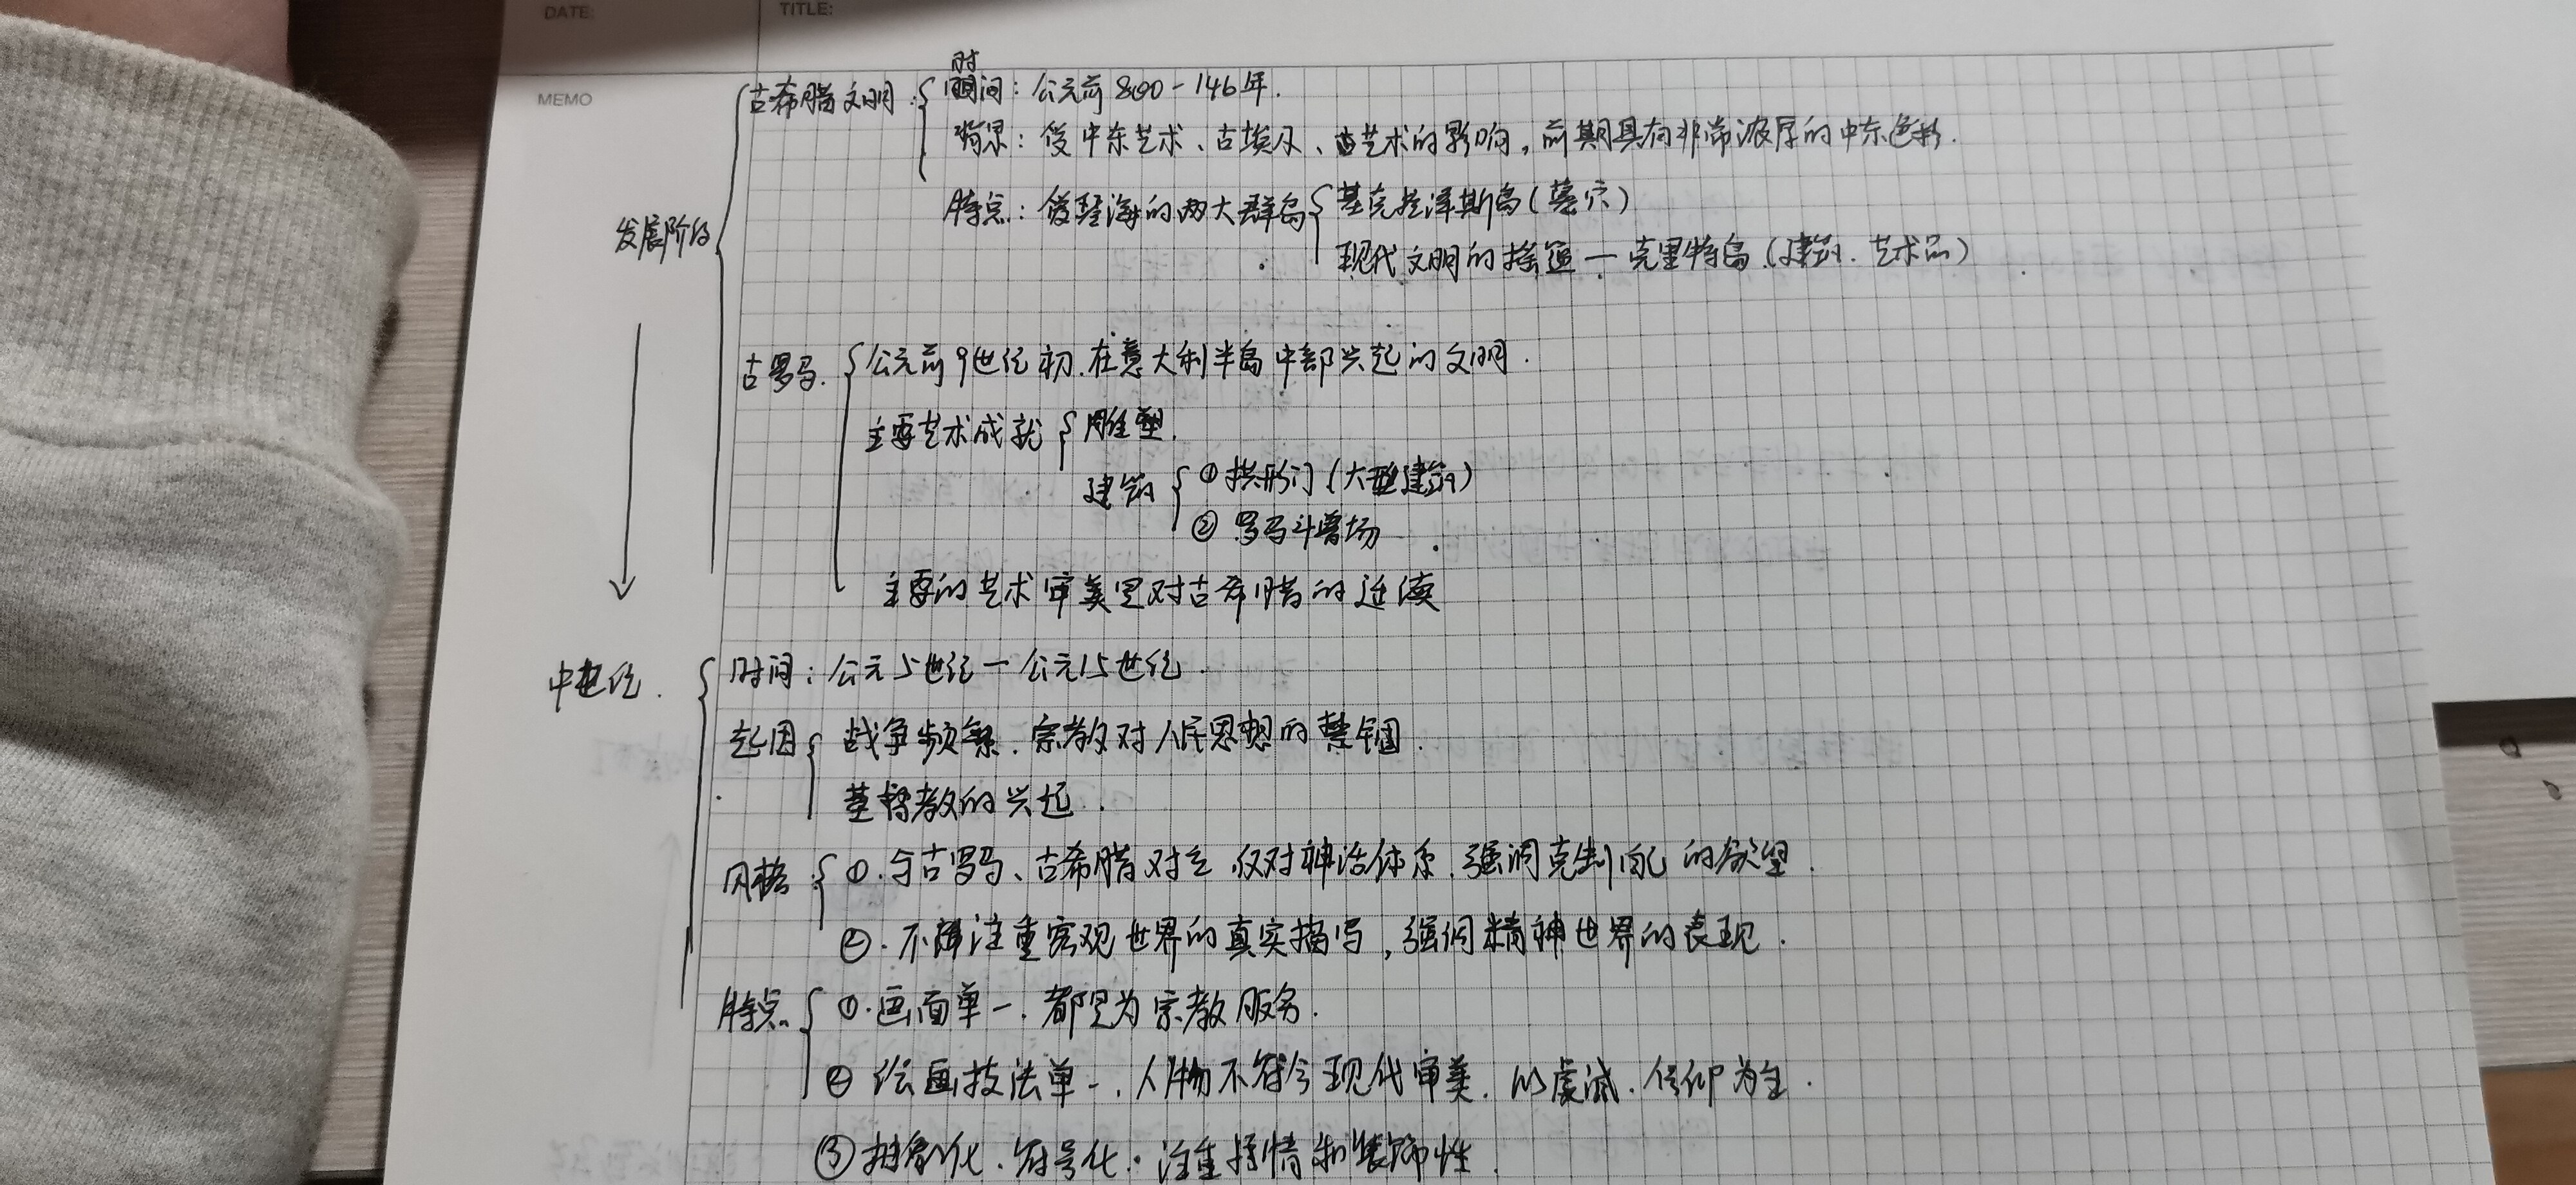 DATE:
TITLE:
MEMO
时
古希腊文明: 时间: 公元前800-146年.
背景: 受中东艺术、古埃及、艺术的影响,前期具有非常浓厚的中东色彩.
发展阶段
特点: 爱琴海的两大群岛 基克拉泽斯岛(墓穴)
现代文明的摇篮—克里特岛(建筑.艺术品)
古罗马. 公元前9世纪初.在意大利半岛中部兴起的文明.
主要艺术成就 雕塑.
建筑 ①拱形门(大型建筑)
② 罗马斗兽场
主要的艺术审美是对古希腊的延续
中世纪. 时间: 公元5世纪—公元15世纪.
起因 战争频繁.宗教对人民思想的禁锢.
基督教的兴起.
风格 ①.与古罗马、古希腊对立 反对神话体系.强调克制自己的欲望.
②.不注重客观世界的真实描写,强调精神世界的表现.
特点 ①.画面单一.都是为宗教服务.
② 绘画技法单一.人物不符合现代审美.以虔诚.信仰为主.
③抽象化.符号化.注重抒情和装饰性.